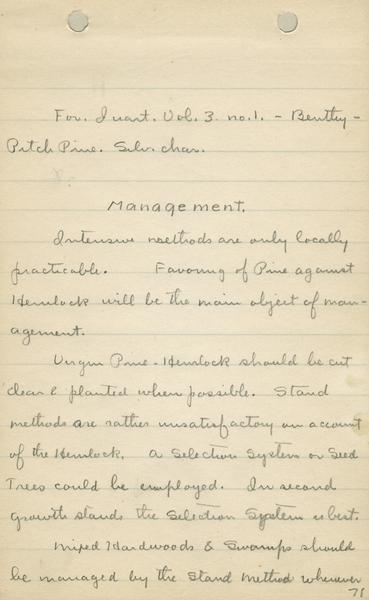 For. Quart. Vol. 3. no. 1. - Bentley -
Pitch Pine. Silv. char.
Management.
Intensive methods are only locally
practicable. Favoring of Pine against
Hemlock will be the main object of man-
agement.
Virgin Pine-Hemlock should be cut
clear & planted when possible. Stand
methods are rather unsatisfactory on account
of the Hemlock, a Selection System or Seed
Trees could be employed. In second
growth stands the Selection System is best.
Mixed Hardwoods & Swamps should
be managed by the Stand Method wherever
71